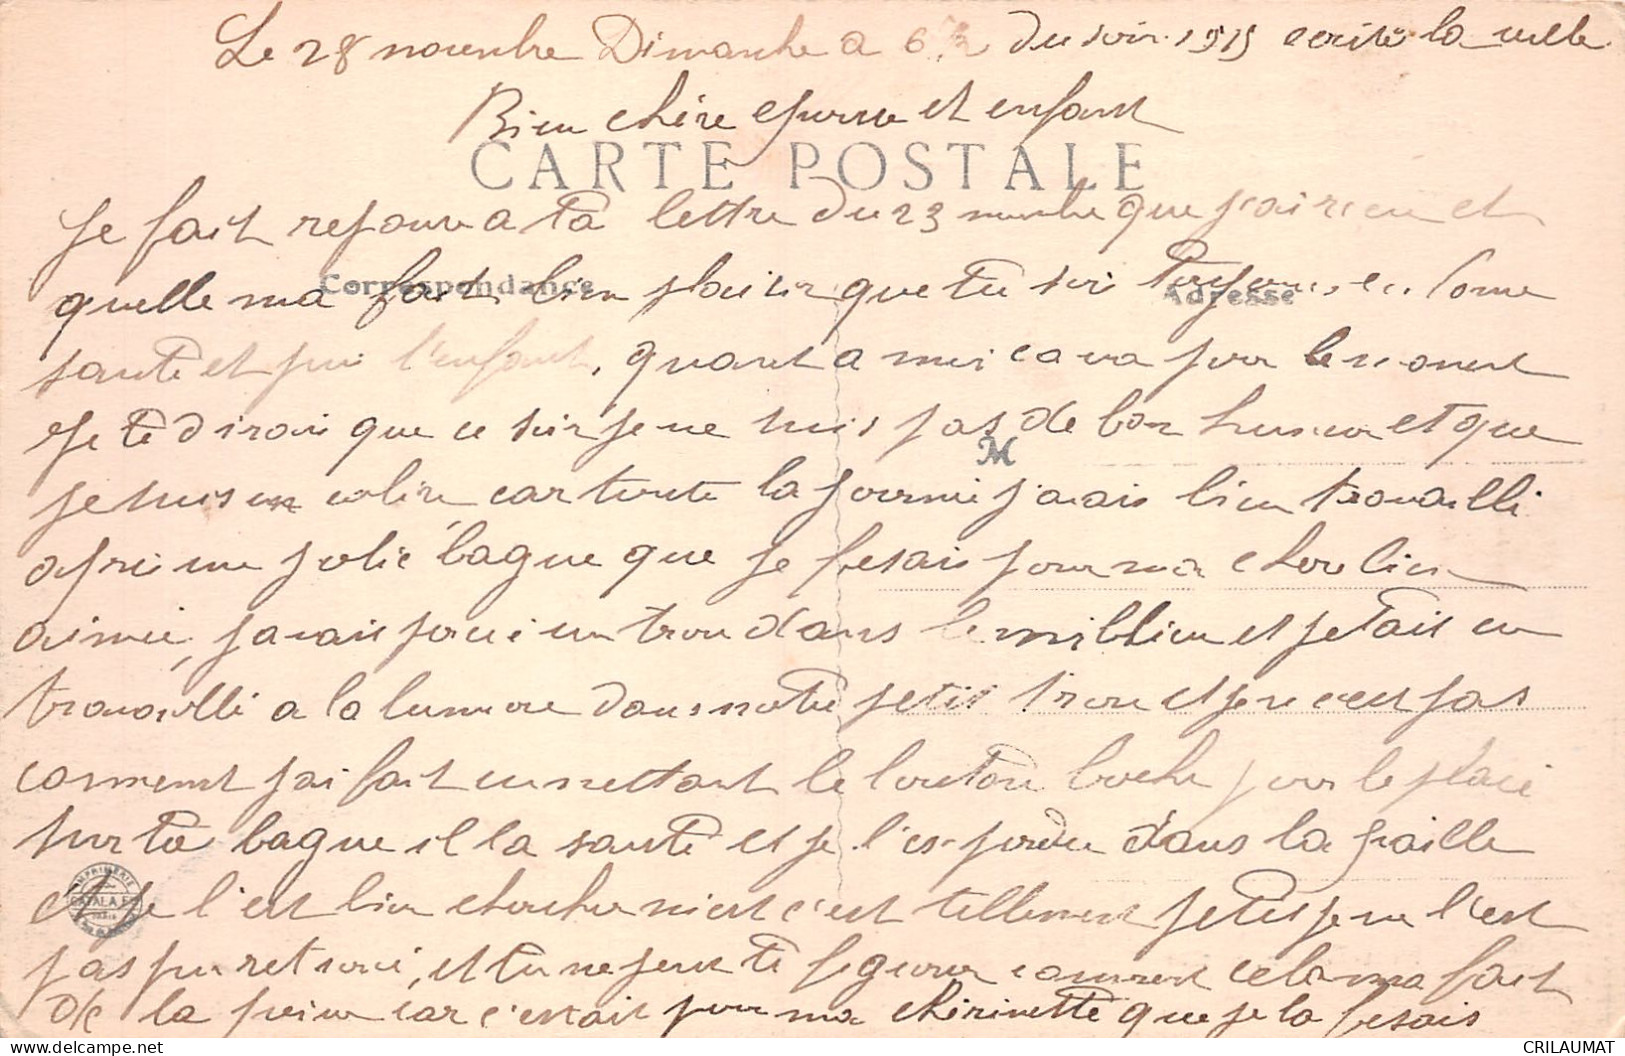 Le 28 novembre Dimanche a 6 ½ du soir 1915 ecrite la veille
Bien chère epouse et enfant
CARTE POSTALE
Je fait reponse a ta lettre du 23 novembre que j'ai recu et
Correspondance
Adresse
quelle ma fait bien plaisir que tu soi toujours en bonne
santé et pui l'enfant, quant a moi ca va pour le moment
Je te dirais que ce soir je ne suis pas de bon humeur et que
M
je suis en colère car toute la journée j'avais bien travailli
apris une jolie bague que je fesais pour ma cher bien
aimée, j'avais percé un trou dans le millieu et jetais en
travailli a la lumiere dans notre petit trou et je ne c'est pas
comment j'ai fait en mettant le bouton boche pour le placé
sur ta bague il la sauté et je l'es perdu dans la paille
et je l'est bien chercher mais c'est tellement petit je ne l'est
pas pu retrouvé, et tu ne peut te figurer comment cela ma fait
de la peine car c'etait pour ma cherinette que je la fesais
IMPRIMERIE CATALA FRES PARIS
CRILAUMAT